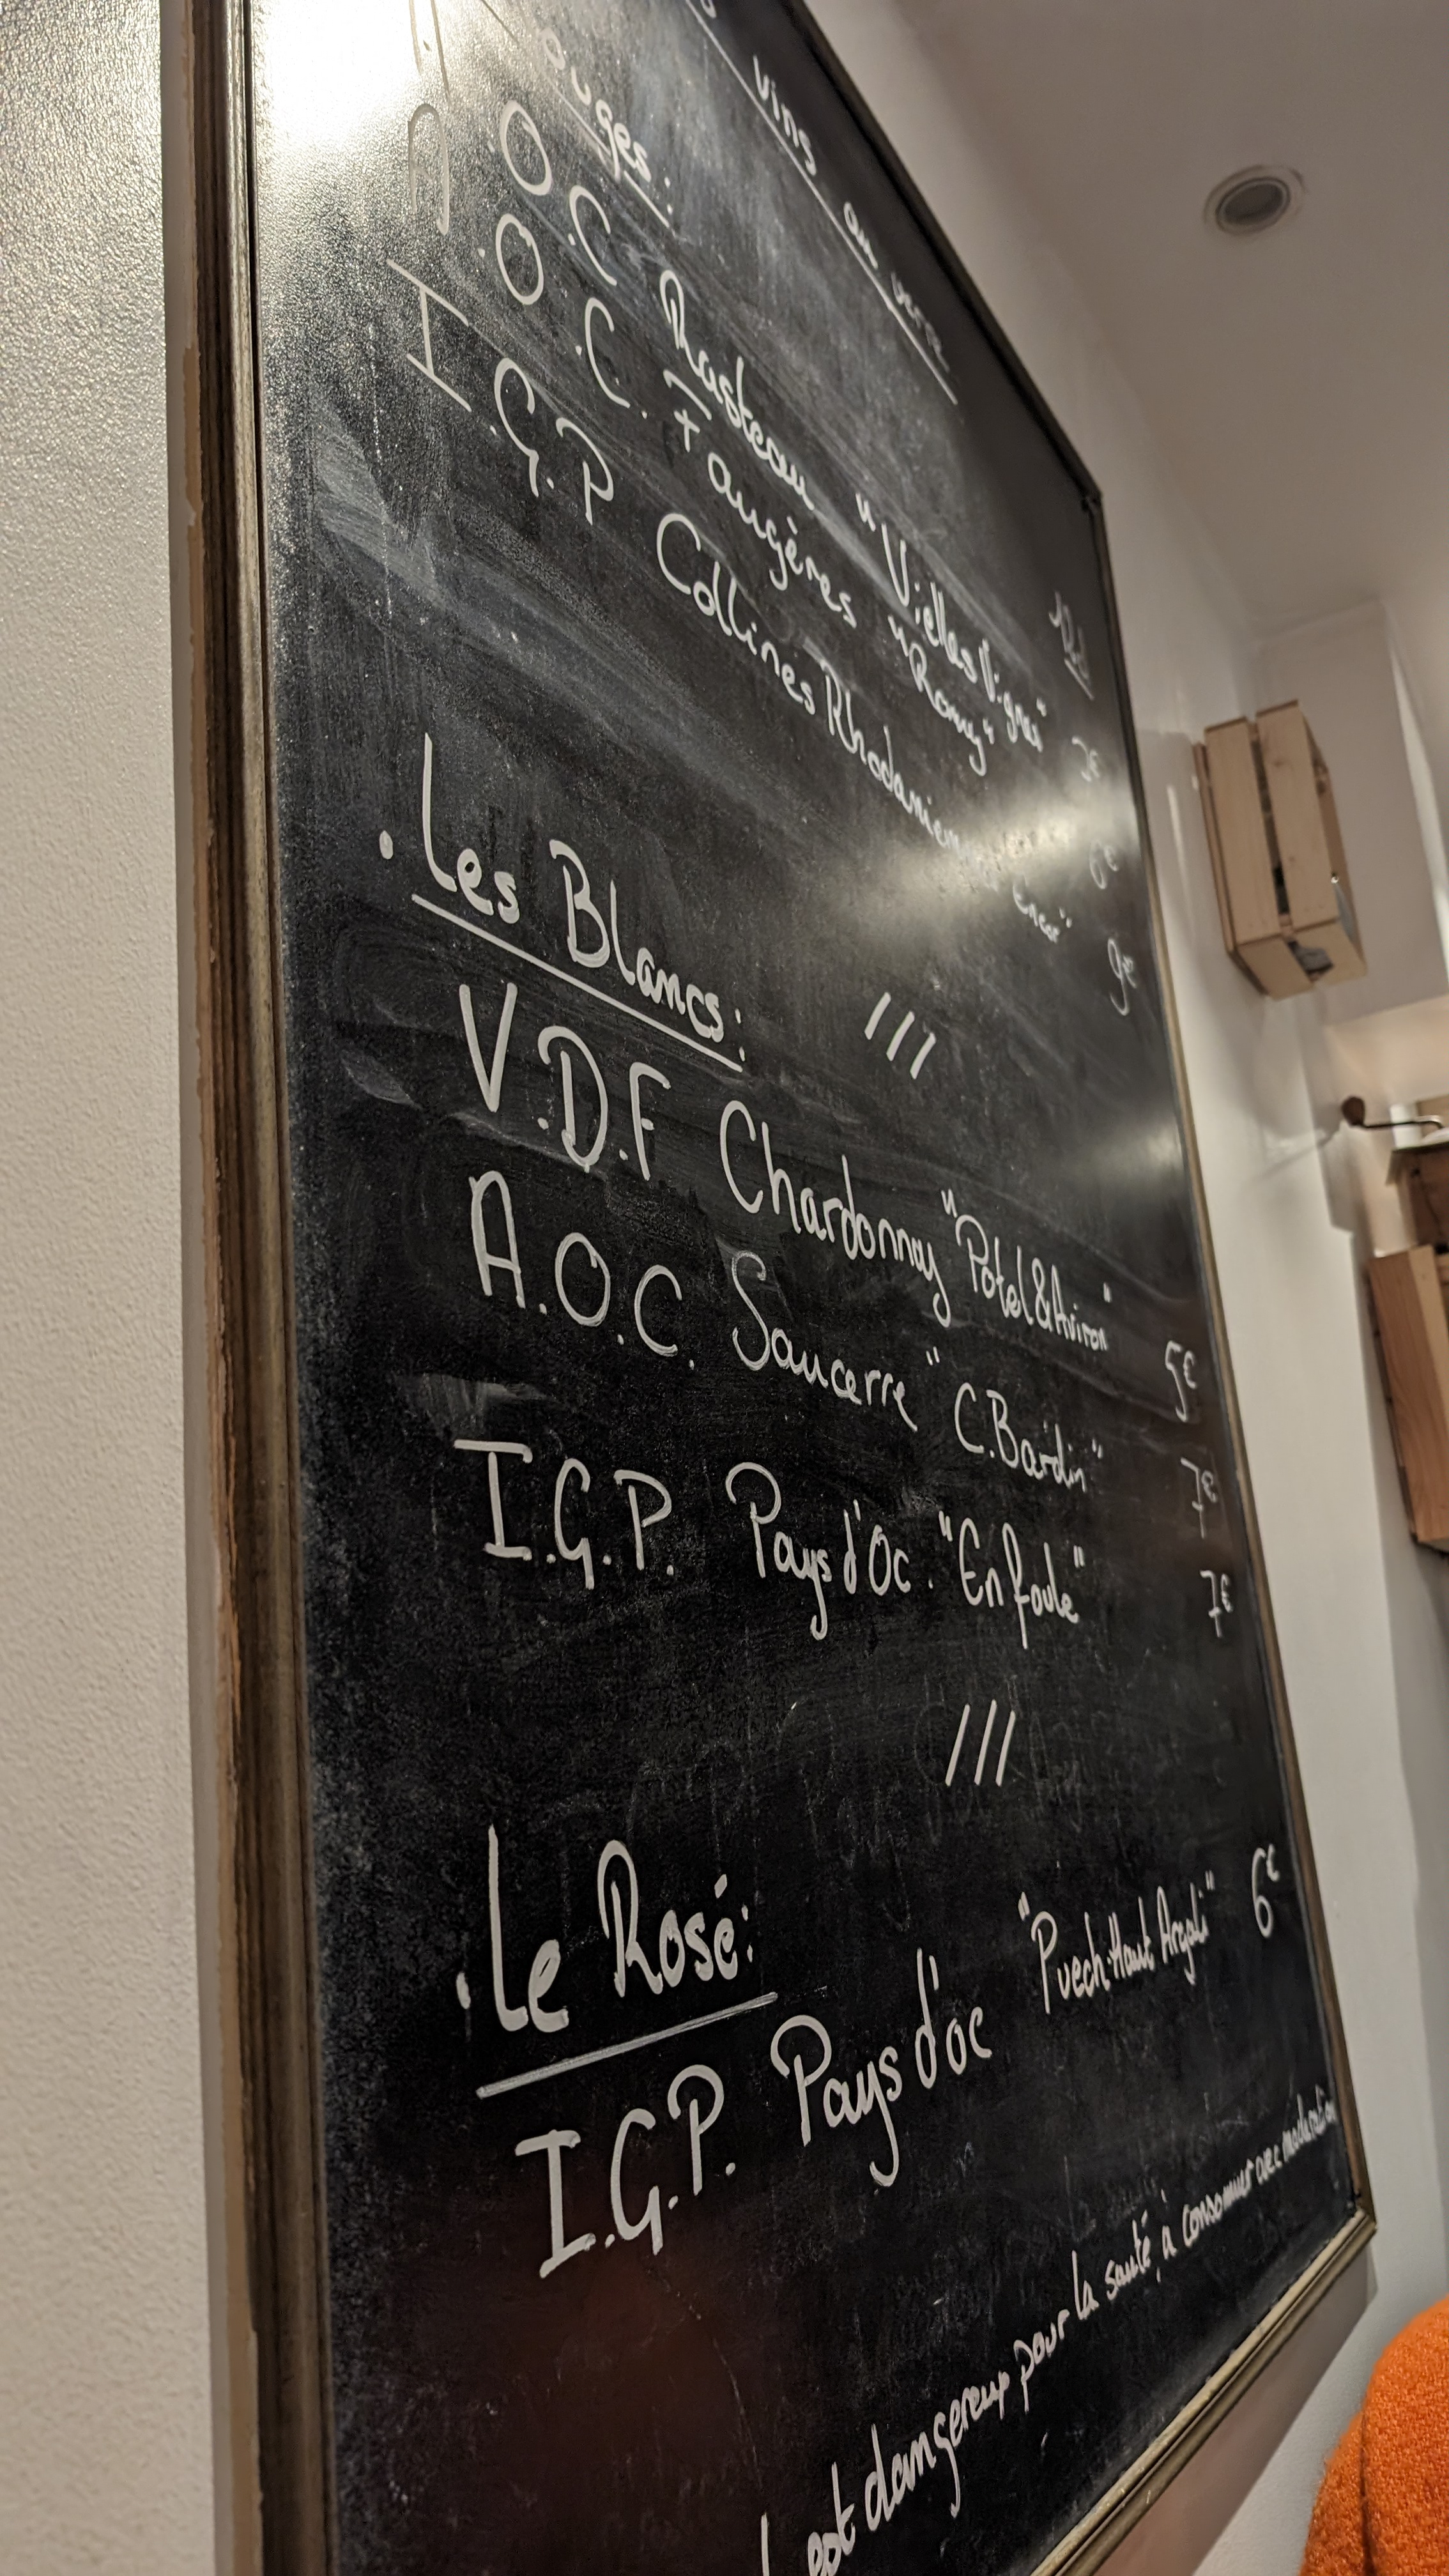 vins au verre
ouges :
A.O.C Rasteau "Vielles Vignes" 7€
A.O.C. Faugères "Romy" 6€
I.G.P Collines Rhodaniennes 9€
///
. Les Blancs :
V.D.F Chardonnay "Potel & Aviron" 5€
A.O.C. Sancerre "C. Bardin" 7€
I.G.P. Pays d'Oc. "En foule" 7€
///
. Le Rosé :
I.G.P. Pays d'oc "Puech-Haut Argali" 6€
est dangereux pour la santé, à consommer avec modération